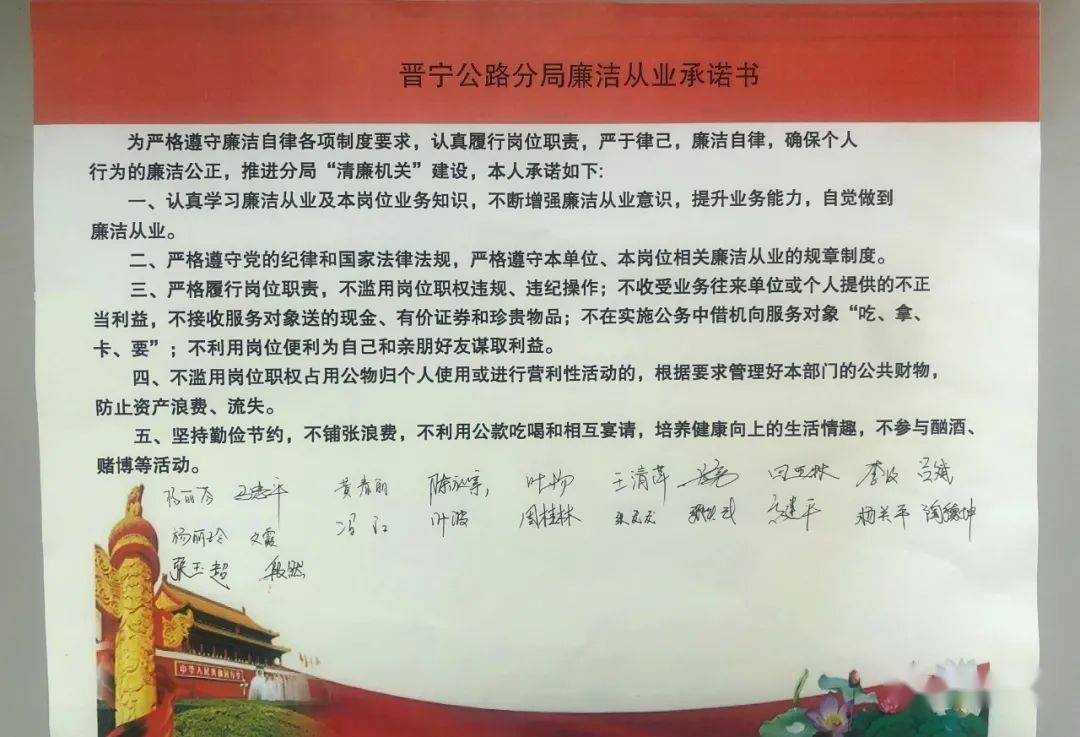 晋宁公路分局廉洁从业承诺书
为严格遵守廉洁自律各项制度要求，认真履行岗位职责，严于律己，廉洁自律，确保个人
行为的廉洁公正，推进分局“清廉机关”建设，本人承诺如下:
一、认真学习廉洁从业及本岗位业务知识，不断增强廉洁从业意识，提升业务能力，自觉做到
廉洁从业。
二、严格遵守党的纪律和国家法律法规，严格遵守本单位、本岗位相关廉洁从业的规章制度。
三、严格履行岗位职责，不滥用岗位职权违规、违纪操作；不收受业务往来单位或个人提供的不正
当利益，不接收服务对象送的现金、有价证券和珍贵物品；不在实施公务中借机向服务对象“吃、拿、
卡、要”；不利用岗位便利为自己和亲朋好友谋取利益。
四、不滥用岗位职权占用公物归个人使用或进行营利性活动的，根据要求管理好本部门的公共财物，
防止资产浪费、流失。
五、坚持勤俭节约，不铺张浪费，不利用公款吃喝和相互宴请，培养健康向上的生活情趣，不参与酗酒、
赌博等活动。
黄春丽 王清萍
冯江 叶波 周桂林 高建平 杨关平
杨丽玲 文霞
张玉超 段然